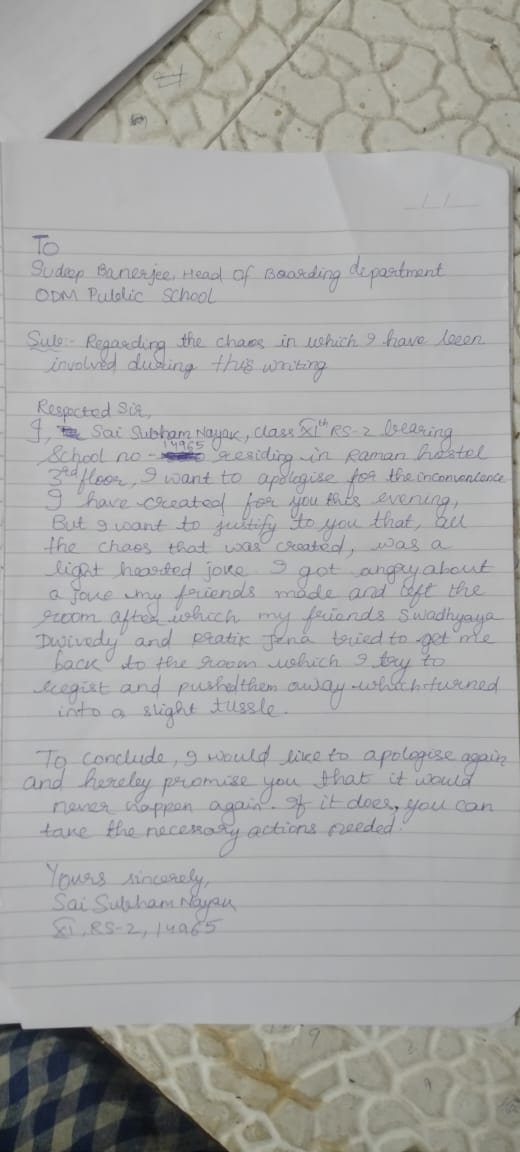 To
Sudeep Banerjee, Head Of Boarding department
ODM Public School
Sub:- Regarding the chaos in which I have been
involved during this writing
Respected Sir,
I, Sai Subham Nayak, class XIth RS-2 bearing
School no - 14965 residing in Raman hostel
3rd floor, I want to apologise for the inconvenience
I have created for you this evening,
But I want to justify to you that, all
the chaos that was created, was a
light hearted joke. I got angry about
a joke my friends made and left the
room after which my friends Swadhyaya
Dwivedy and Pratik Jena tried to get me
back to the room which I try to
regist and pushed them away which turned
into a slight tussle.
To conclude, I would like to apologise again
and hereby promise you that it would
never happen again. If it does, you can
take the necessary actions needed.
Yours sincerely,
Sai Subham Nayak
XI, RS-2, 14965